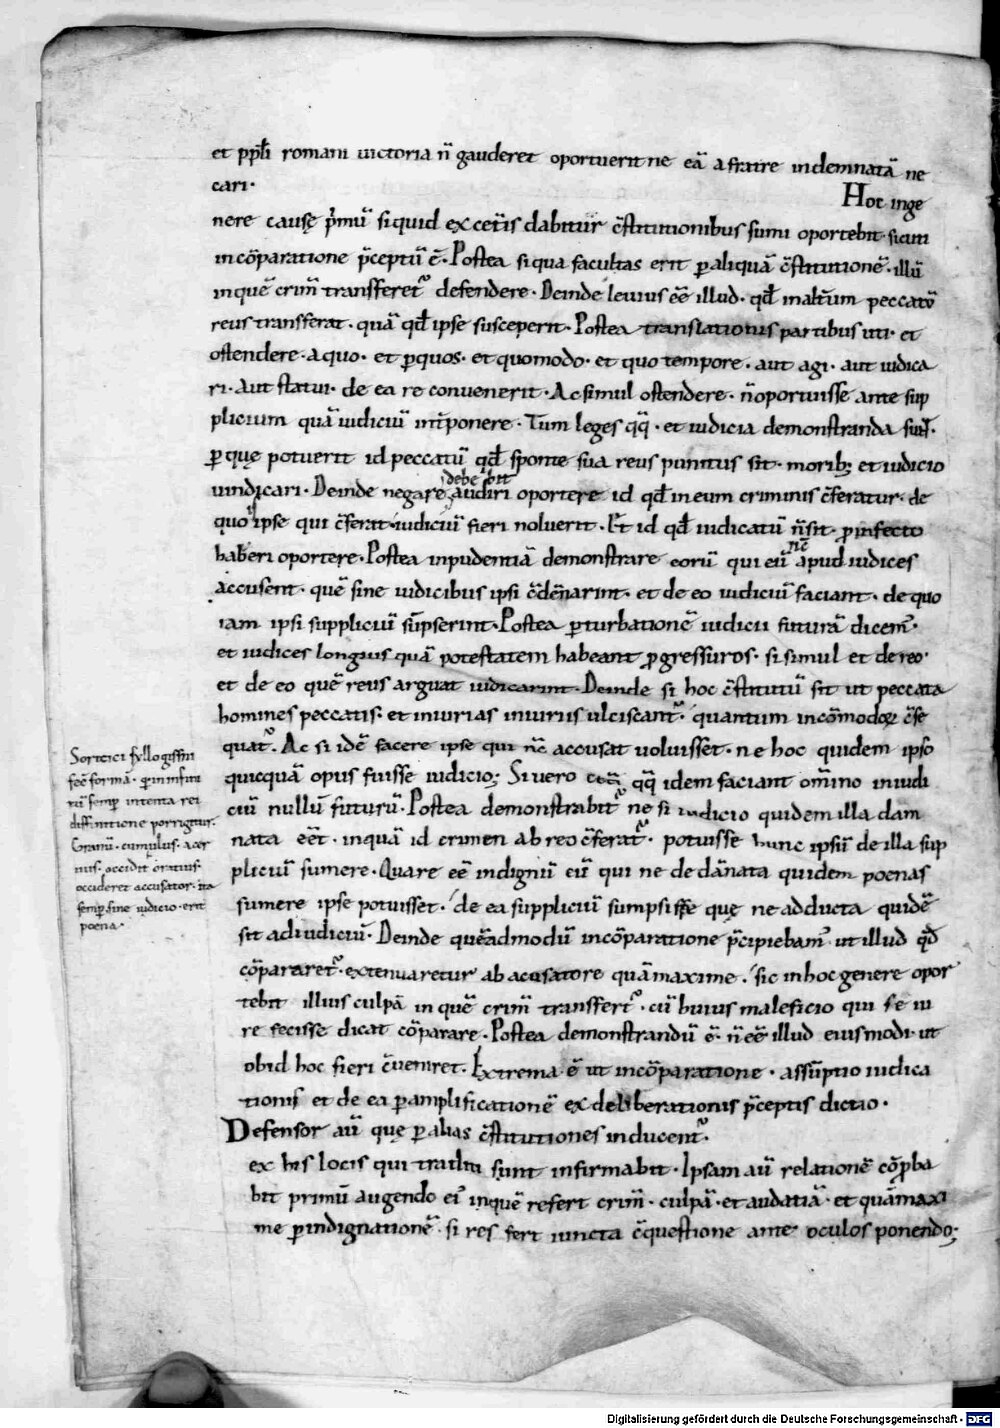 et ppli romani uictoria n̄ gauderet oportuerit ne eā a fratre indemnatā ne
cari·
Hoc inge
nere causę p̄mū siquid ex ceteris dabitur c̄stitutionibus sumi oportebit· sicuti
incōparatione p̄ceptū ē· Postea siqua facultas erit p̱ aliquā c̄stitutionē· illū
inquē crim̄ transferet᷒ defendere· Deinde leuius eē illud· qd̄ inalt̄um peccatū
reus transferat· quā qd̄ ipse susceperit· Postea translationis partibus uti· et
ostendere· aquo· et p̱quos· et quomodo· et quo tempore· aut agi· aut iudica
ri· aut statui· de ea re conuenerit· Ac simul ostendere· n̄ oportuisse ante sup
plicium quā iudiciū int̄ponere· Tum leges qq̄· et iudicia demonstranda sunt·
p̱ quę potuerit id peccatū qd̄ sponte sua reus punitus sit· morib; et iudicio
uindicari· Deinde negare audiri oportere id qd̄ in eum criminis c̄feratur· de
debebit
quo ipse qui c̄ferat iudiciū fieri noluerit· Et id qd̄ iudicatū n̄ sit· pro infecto
haberi oportere· Postea inpudentiā demonstrare eorū qui eū apud iudices
nc̄
accusent· quē sine iudicibus ipsi c̄dēnarint· et de eo iudiciū faciant· de quo
iam ipsi suppliciū sūpserint· Postea p̱turbationē iudicii futurā dicem᷒·
et iudices longius quā potestatem habeant p̱gressuros· si simul et de reo·
et de eo quē reus arguat iudicarint· Deinde si hoc c̄stitutū sit ut peccata
homines peccatis· et iniurias iniuriis ulciscant᷒· quantum incōmodoꝝ c̄se
quat᷒· Ac si idē facere ipse qui nc̄ accusat uoluisset· ne hoc quidem ipso
quicquā opus fuisse iudicio; Si uero qq̄ idem faciant om̄ino iniudi
ciū nullū futurū· Postea demonstrabit᷒ ne si iudicio quidem illa dam
nata eēt· inquā id crimen ab reo c̄ferat᷒· potuisse hunc ipsū de illa sup
pliciū sumere· Quare eē indignū eū qui ne de dānata quidem poenas
sumere ipse potuisset· de ea suppliciū sumpsisse quę ne adducta quidē
sit ad iudiciū· Deinde quēadmodū incōparatione p̄cipiebam᷒ ut illud qd̄
cōpararet᷒· extenuaretur ab acusatore quā maxime· sic in hoc genere opor
tebit illius culpā in quē crim̄ transfert᷒· cū huius maleficio qui se iu
re fecisse dicat cōparare· Postea demonstrandū ē· n̄ eē illud eiusmodi· ut
ob id hoc fieri c̄ueniret· Extrema ē ut incōparatione· assūptio iudica
tionis et de ea p̱ amplificationē ex deliberationis p̄ceptis dictio·
Defensor aū quę p̱ alias c̄stitutiones inducent᷒·
ex his locis qui traditi sunt infirmabit· Ipsam aū relationē cōp̱ba
bit primū augendo ei᷒ inquē refert crim̄· culpā· et audatiā· et quā maxi
me p̱ indignationē· si res fert iuncta c̄questione ante oculos ponendo;
Soritici syllogismi
feē formā· in infini
tū semp̱ intenta rei
diffinitione porrigitur·
Granū· cumulus· acer
uus· occidit oratius·
occideret accusator· ita
semp̱ sine iudicio· erit
poena·
Digitalisierung gefördert durch die Deutsche Forschungsgemeinschaft - DFG